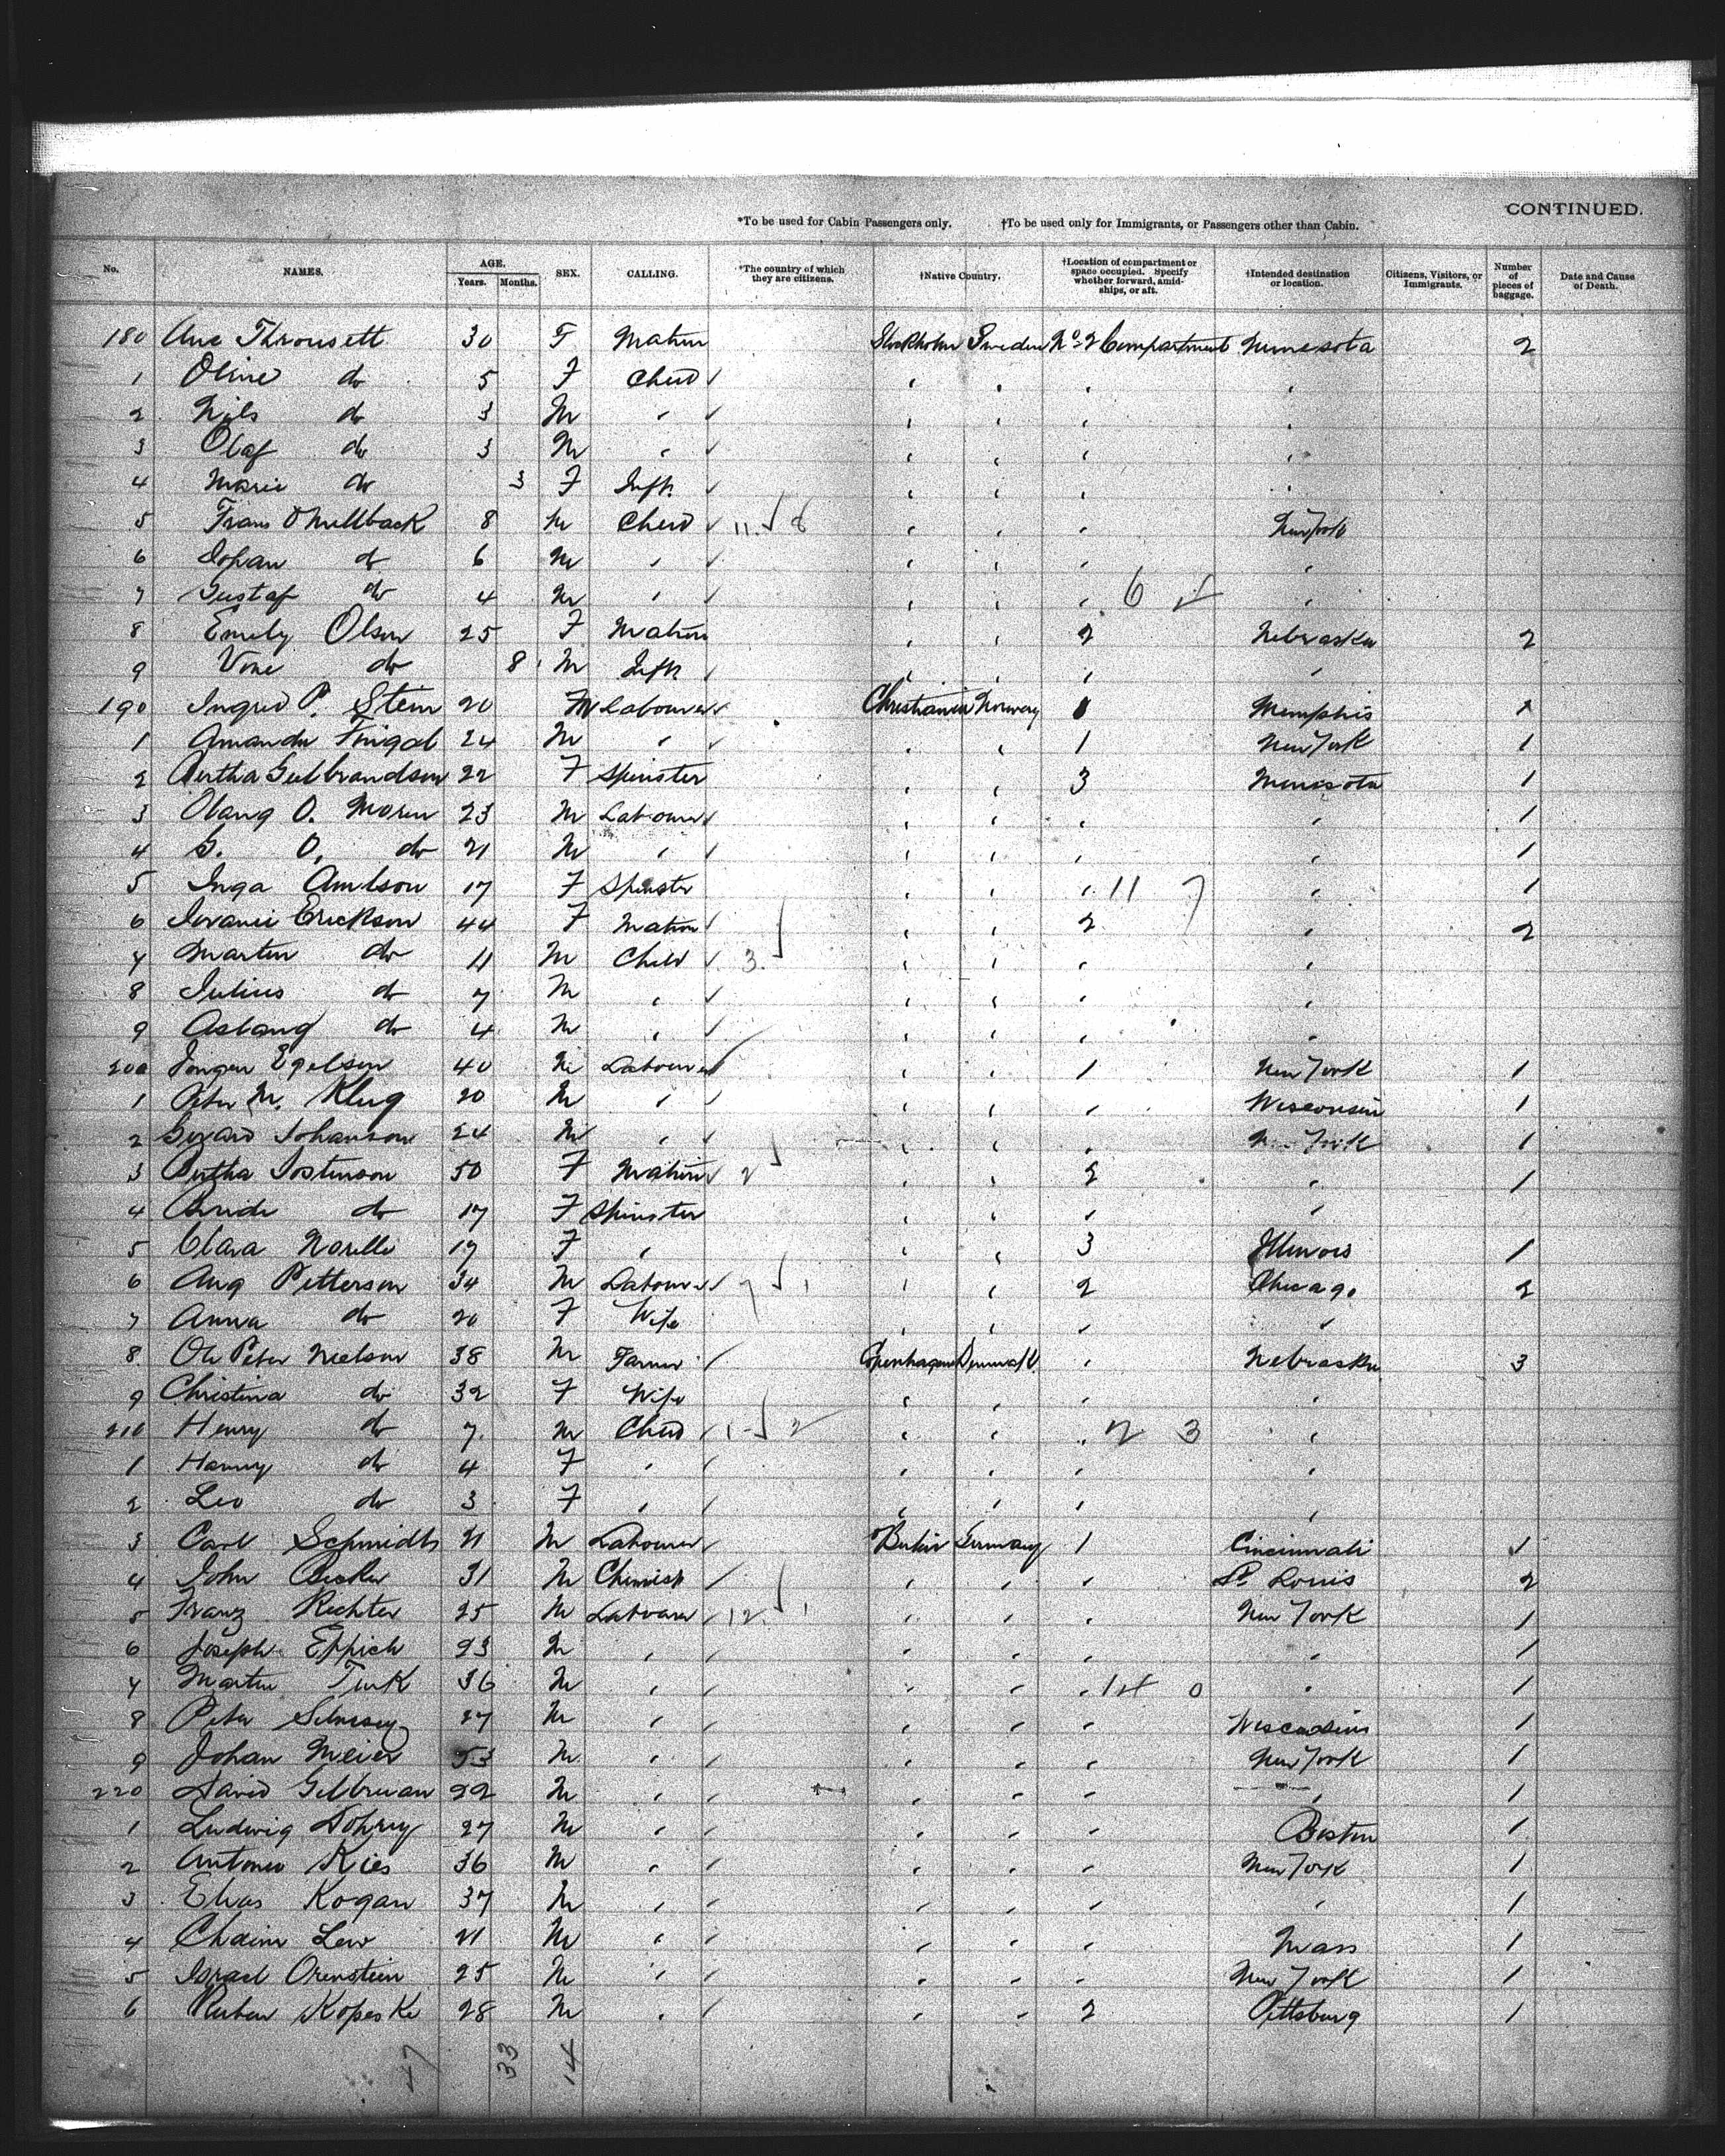 CONTINUED.
*To be used for Cabin Passengers only. †To be used only for Immigrants, or Passengers other than Cabin.
No. NAMES. AGE. Years. Months. SEX. CALLING. *The country of which they are citizens. †Native Country. †Location of compartment or space occupied. Specify whether forward, amidships, or aft. †Intended destination or location. Citizens, Visitors, or Immigrants. Number of pieces of baggage. Date and Cause of Death.
180 Ane Thronsett 30 F Matron Stockholm Sweden No 2 Compartment Minnesota 2
1 Oline do 5 F Child
2 Nils do 3 M
3 Olaf do 3 M
4 Marie do 3 F Inft.
5 Frans 8 M Child 11 8 New York
6 Johan do 6 M
7 Gustaf do 4 M 6
8 Emely Olson 25 F Matron 2 Nebraska 2
9 do 8 M Inft.
190 Ingred P. Stein 20 M Labourer Christiania Norway 1 Memphis 1
1 Amandu 24 M 1 New York 1
2 Bertha Gulbrandson 22 F Spinster 3 Minnesota 1
3 O. Moren 23 M Labourer 1
4 G. O. do 21 M 1
5 Inga Amlson 17 F Spinster 11 7 1
6 Erickson 44 F Matron 2 2
7 Martin do 11 M Child 3
8 Julius do 7 M
9 Aslaug do 4 M
200 Egelsen 40 M Labourer 1 New York 1
1 Peter M. Klug 20 M Wisconsin 1
2 Johanson 24 M N. York 1
3 Bertha Jostenson 50 F Matron 2 2 1
4 do 17 F Spinster
5 Clara Norelli 19 F 3 Illinois 1
6 Aug Petterson 34 M Labourer 2 Chicago 2
7 Anna do 20 F Wife
8 Ole Peter Nielson 38 M Farmer Copenhagen Denmark Nebraska 3
9 Christina do 32 F Wife
210 Henry do 7 M Child 2 3
1 Hanny do 4 F
2 Leo do 3 F
3 Carl Schmidts 21 M Labourer Berlin Germany 1 Cincinnati 1
4 John Becker 31 M Chemist St Louis 2
5 Franz Richter 25 M Labourer 12 1 New York 1
6 Joseph Eppich 23 M 1
7 Martin Turk 36 M 14 0 1
8 Peter 27 M Wisconsin 1
9 Johan Meier 53 M New York 1
220 David Gelbman 22 M 1
1 Ludwig 27 M Boston 1
2 Antonio Kies 36 M New York 1
3 Elias Kogan 37 M 1
4 Chaim Lew 21 M Mass 1
5 Israel Orenstein 25 M New York 1
6 Ruben Kopeske 28 M 2 Pittsburg 1
47 33 14